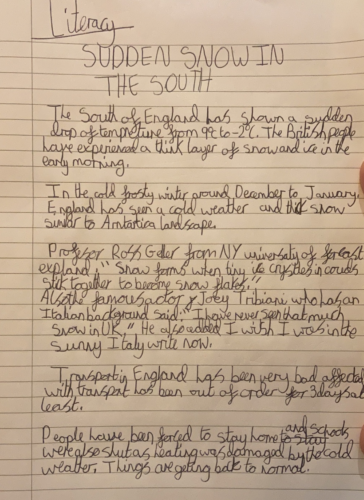 Literacy
SUDDEN SNOW IN
THE SOUTH
The South of England has shown a sudden
drop of tempreture from 9°c to -2°c. The British people
have experienced a thick layer of snow and ice in the
early morning.
In the cold frosty winter around December to January.
England has seen a cold weather and thik snow
similar to Antartica landscape.
Profesor Ross Geller from NY universaty of forcast
expland, "Snow forms when tiny ice crystles in clouds
stick together to become snow flakes."
Also the famous actor Joey Tribiani who has an
Italian background said: "I have never seen that much
snow in UK." He also added I wish I was in the
sunny Italy write now.
Transport in England has been very bad affected
with transport has been out of order for 3 days at
least.
People have been forced to stay home and schools
were also shut as heating was damaged by the cold
weather. Things are geting back to normal.